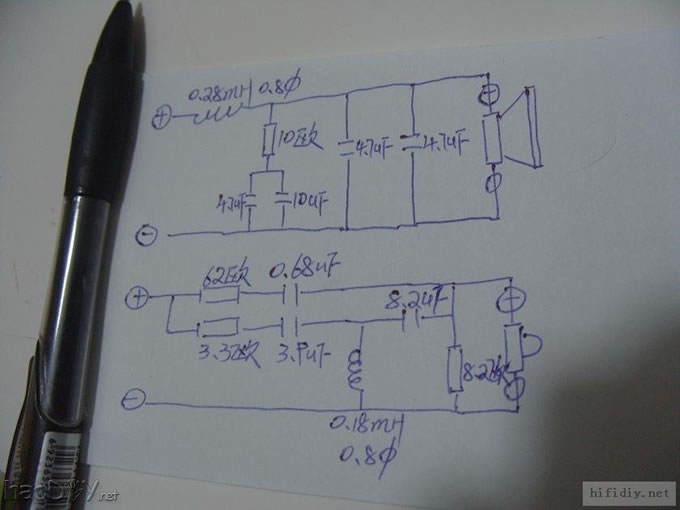 0.28mH 0.8Φ
⊕
10欧
4.7uF
4.7uF
4.7uF
10uF
⊖
62欧
0.68uF
⊕
8.2uF
3.3欧
3.9uF
8.2欧
⊖
0.18mH
0.8Φ
.net
hifidiy.net